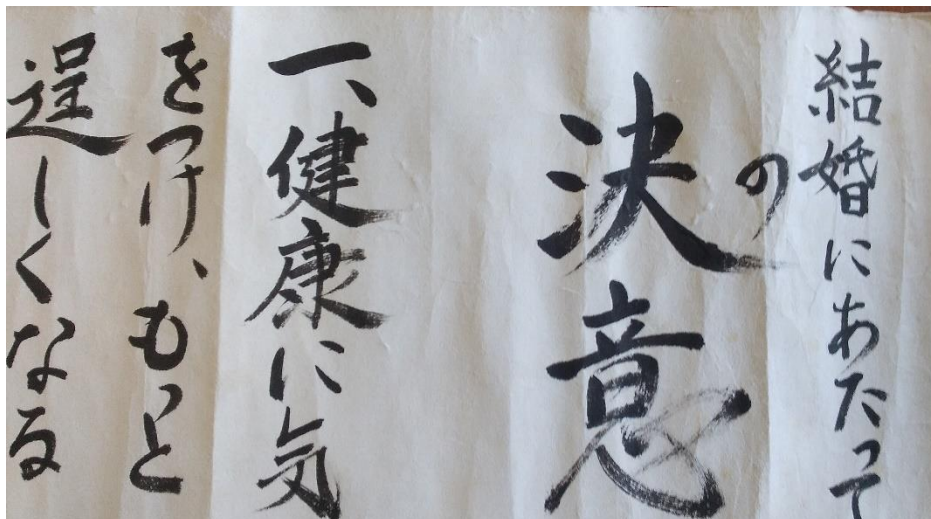 結婚にあたって
の
決意
一、健康に気
をつけ、もっと
逞しくなる